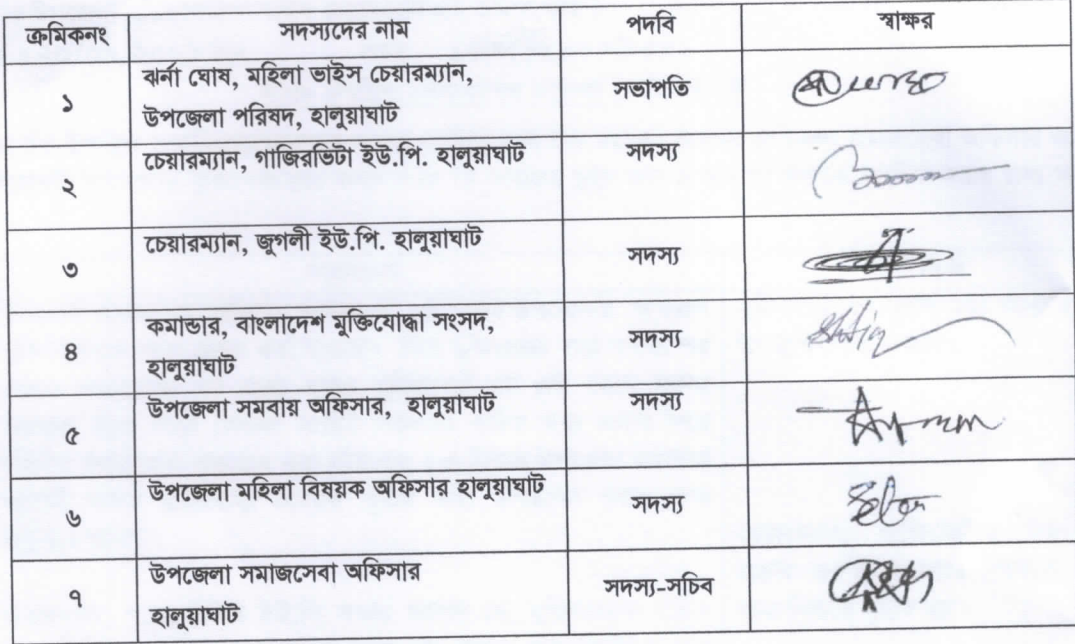 ক্রমিকনং সদস্যদের নাম পদবি স্বাক্ষর
১ ঝর্না ঘোষ, মহিলা ভাইস চেয়ারম্যান, সভাপতি
উপজেলা পরিষদ, হালুয়াঘাট
২ চেয়ারম্যান, গাজিরভিটা ইউ.পি. হালুয়াঘাট সদস্য
৩ চেয়ারম্যান, জুগলী ইউ.পি. হালুয়াঘাট সদস্য
৪ কমান্ডার, বাংলাদেশ মুক্তিযোদ্ধা সংসদ, সদস্য
হালুয়াঘাট
৫ উপজেলা সমবায় অফিসার, হালুয়াঘাট সদস্য
৬ উপজেলা মহিলা বিষয়ক অফিসার হালুয়াঘাট সদস্য
৭ উপজেলা সমাজসেবা অফিসার সদস্য-সচিব
হালুয়াঘাট